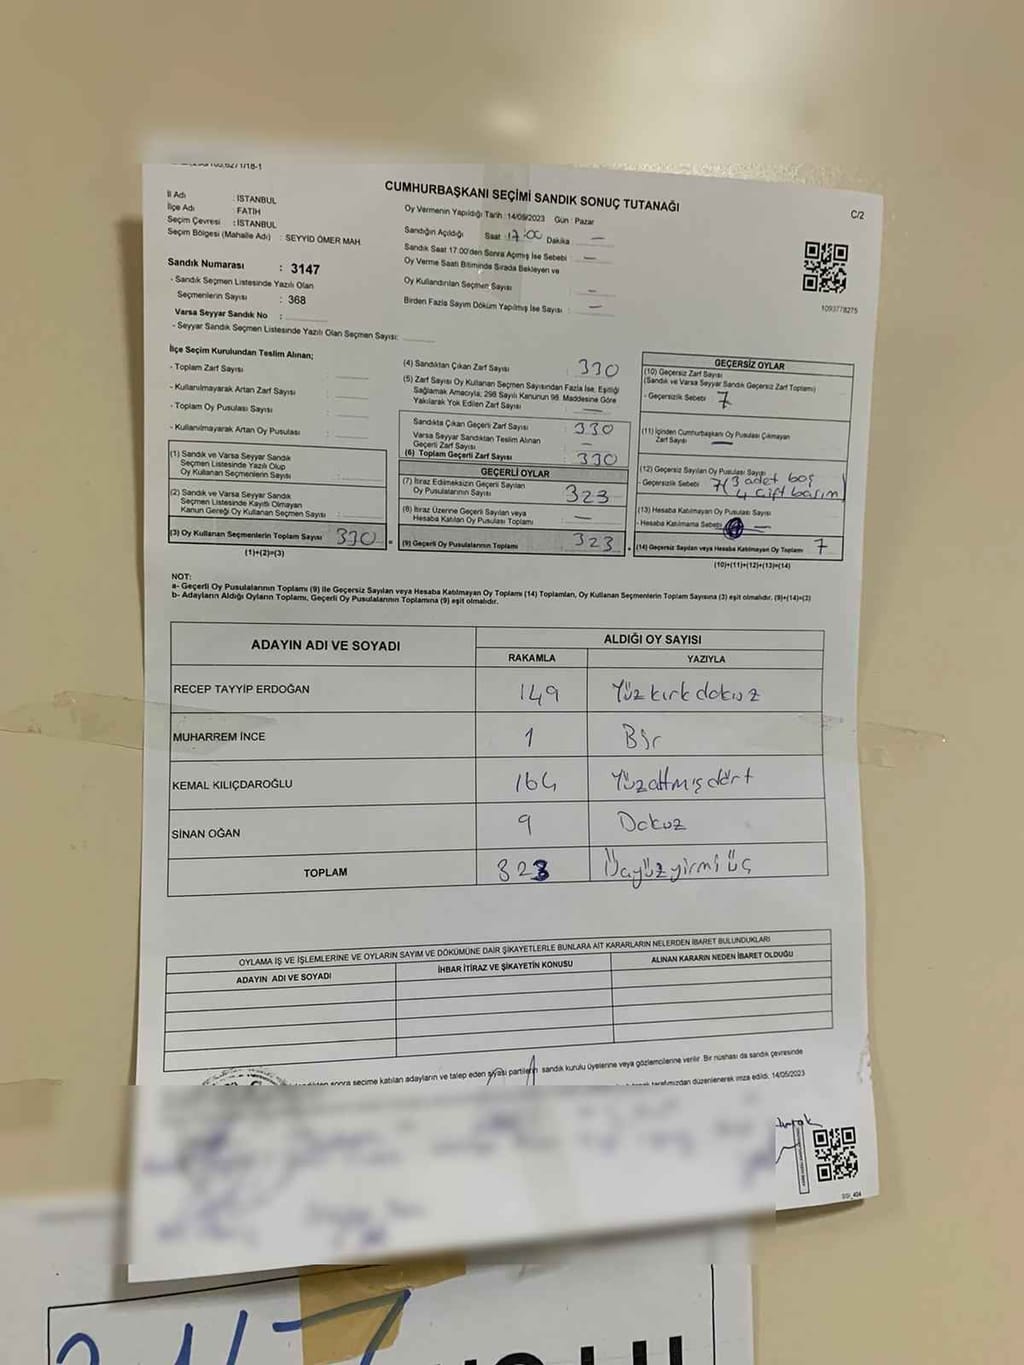 CUMHURBAŞKANI SEÇİMİ SANDIK SONUÇ TUTANAĞI
C/2
İl Adı : İSTANBUL
İlçe Adı : FATİH
Seçim Çevresi : İSTANBUL
Seçim Bölgesi (Mahalle Adı) : SEYYİD ÖMER MAH.
Oy Vermenin Yapıldığı Tarih : 14/05/2023 Gün : Pazar
Sandığın Açıldığı Saat : 17:00 Dakika : —
Sandık Saat 17.00'den Sonra Açılmış İse Sebebi : —
Oy Verme Saati Bitiminde Sırada Bekleyen ve
Oy Kullandırılan Seçmen Sayısı : —
Birden Fazla Sayım Döküm Yapılmış İse Sayısı : —
1093778275
Sandık Numarası : 3147
- Sandık Seçmen Listesinde Yazılı Olan
Seçmenlerin Sayısı : 368
Varsa Seyyar Sandık No :
- Seyyar Sandık Seçmen Listesinde Yazılı Olan Seçmen Sayısı:
İlçe Seçim Kurulundan Teslim Alınan;
- Toplam Zarf Sayısı :
- Kullanılmayarak Artan Zarf Sayısı :
- Toplam Oy Pusulası Sayısı :
- Kullanılmayarak Artan Oy Pusulası :
(1) Sandık ve Varsa Seyyar Sandık
Seçmen Listesinde Yazılı Olup
Oy Kullanan Seçmenlerin Sayısı :
(2) Sandık ve Varsa Seyyar Sandık
Seçmen Listesinde Kayıtlı Olmayan
Kanun Gereği Oy Kullanan Seçmen Sayısı :
(3) Oy Kullanan Seçmenlerin Toplam Sayısı 330
(1)+(2)=(3)
(4) Sandıktan Çıkan Zarf Sayısı : 330
(5) Zarf Sayısı Oy Kullanan Seçmen Sayısından Fazla İse, Eşitliği
Sağlamak Amacıyla; 298 Sayılı Kanunun 98. Maddesine Göre
Yakılarak Yok Edilen Zarf Sayısı : —
Sandıkta Çıkan Geçerli Zarf Sayısı : 330
Varsa Seyyar Sandıktan Teslim Alınan
Geçerli Zarf Sayısı : —
(6) Toplam Geçerli Zarf Sayısı : 330
GEÇERLİ OYLAR
(7) İtiraz Edilmeksizin Geçerli Sayılan
Oy Pusulalarının Sayısı : 323
(8) İtiraz Üzerine Geçerli Sayılan veya
Hesaba Katılan Oy Pusulası Toplamı : —
(9) Geçerli Oy Pusulalarının Toplamı 323
GEÇERSİZ OYLAR
(10) Geçersiz Zarf Sayısı
(Sandık ve Varsa Seyyar Sandık Geçersiz Zarf Toplamı)
- Geçersizlik Sebebi : 7
(11) İçinden Cumhurbaşkanı Oy Pusulası Çıkmayan
Zarf Sayısı : —
(12) Geçersiz Sayılan Oy Pusulası Sayısı
- Geçersizlik Sebebi : 7 (3 adet boş
4 çift basım
(13) Hesaba Katılmayan Oy Pusulası Sayısı
- Hesaba Katılmama Sebebi : —
(14) Geçersiz Sayılan veya Hesaba Katılmayan Oy Toplamı 7
(10)+(11)+(12)+(13)=(14)
NOT:
a- Geçerli Oy Pusulalarının Toplamı (9) ile Geçersiz Sayılan veya Hesaba Katılmayan Oy Toplamı (14) Toplamları, Oy Kullanan Seçmenlerin Toplam Sayısına (3) eşit olmalıdır. (9)+(14)=(3)
b- Adayların Aldığı Oyların Toplamı, Geçerli Oy Pusulalarının Toplamına (9) eşit olmalıdır.
ADAYIN ADI VE SOYADI ALDIĞI OY SAYISI
RAKAMLA YAZIYLA
RECEP TAYYİP ERDOĞAN 149 Yüz kırk dokuz
MUHARREM İNCE 1 Bir
KEMAL KILIÇDAROĞLU 164 Yüz altmış dört
SİNAN OĞAN 9 Dokuz
TOPLAM 323 Üçyüz yirmi üç
OYLAMA İŞ VE İŞLEMLERİNE VE OYLARIN SAYIM VE DÖKÜMÜNE DAİR ŞİKAYETLERLE BUNLARA AİT KARARLARIN NELERDEN İBARET BULUNDUKLARI
ADAYIN ADI VE SOYADI İHBAR İTİRAZ VE ŞİKAYETİN KONUSU ALINAN KARARIN NEDEN İBARET OLDUĞU
sonra seçime katılan adayların ve talep eden siyasi partilerin sandık kurulu üyelerine veya gözlemcilerine verilir. Bir nüshası da sandık çevresinde
tarafımızdan düzenlenerek imza edildi. 14/05/2023